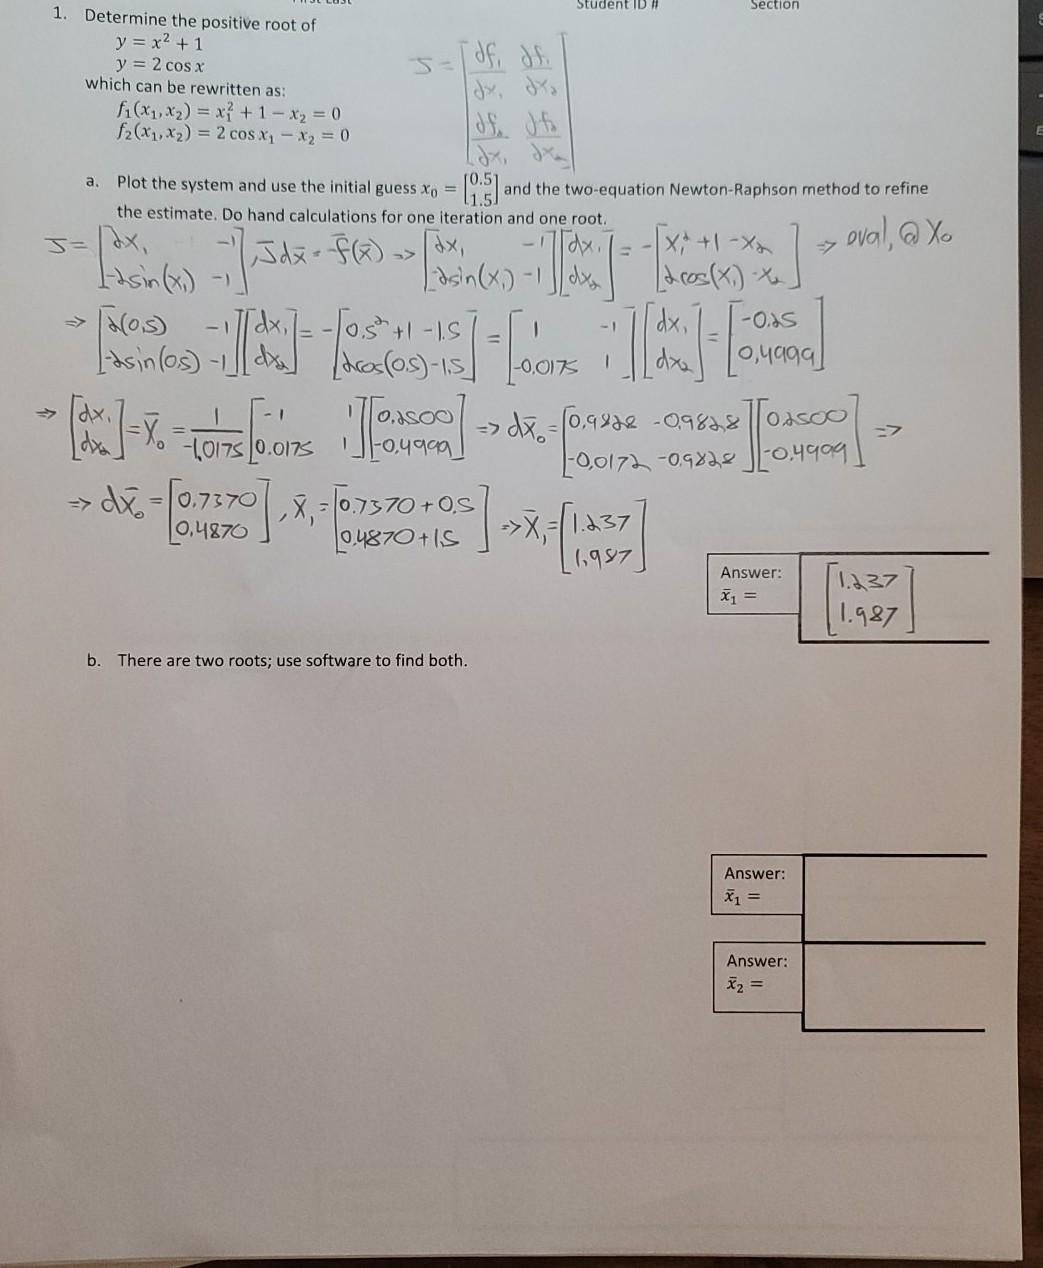 Student ID #
Section
1. Determine the positive root of
y = x² + 1
y = 2 cos x
which can be rewritten as:
f₁(x₁, x₂) = x₁² + 1 − x₂ = 0
f₂(x₁, x₂) = 2 cos x₁ − x₂ = 0
J = [∂f₁/∂x₁ ∂f₁/∂x₂; ∂f₂/∂x₁ ∂f₂/∂x₂]
a. Plot the system and use the initial guess x₀ = [0.5; 1.5] and the two-equation Newton-Raphson method to refine
the estimate. Do hand calculations for one iteration and one root.
J = [2x₁ -1; -2sin(x₁) -1], J̄dx̄ = -f̄(x̄) => [2x₁ -1; -2sin(x₁) -1][dx₁; dx₂] = -[x₁² +1 -x₂; 2cos(x₁) -x₂] => eval, @ X₀
=> [2(0.5) -1; -2sin(0.5) -1][dx₁; dx₂] = -[0.5² +1 -1.5; 2cos(0.5) -1.5] = [1 -1; -0.0175 1][dx₁; dx₂] = [-0.25; 0.4999]
=> [dx₁; dx₂] = X̄₀ = 1/-1.0175 [-1 1; 0.0175 1][0.2500; -0.4999] => dx̄₀ = [0.9828 -0.9828; -0.0172 -0.9828][0.2500; -0.4999] =>
=> dx̄₀ = [0.7370; 0.4870], X̄₁ = [0.7370 + 0.5; 0.4870 + 1.5] => X̄₁ = [1.237; 1.987]
Answer:
x̄₁ =
[1.237; 1.987]
b. There are two roots; use software to find both.
Answer:
x̄₁ =
Answer:
x̄₂ =